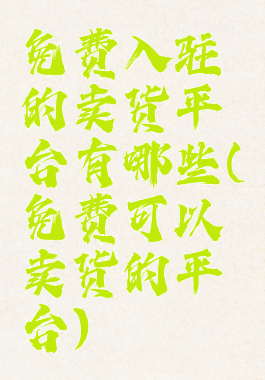 免费入驻
的卖货平
台有哪些(
免费可以
卖货的平
台)